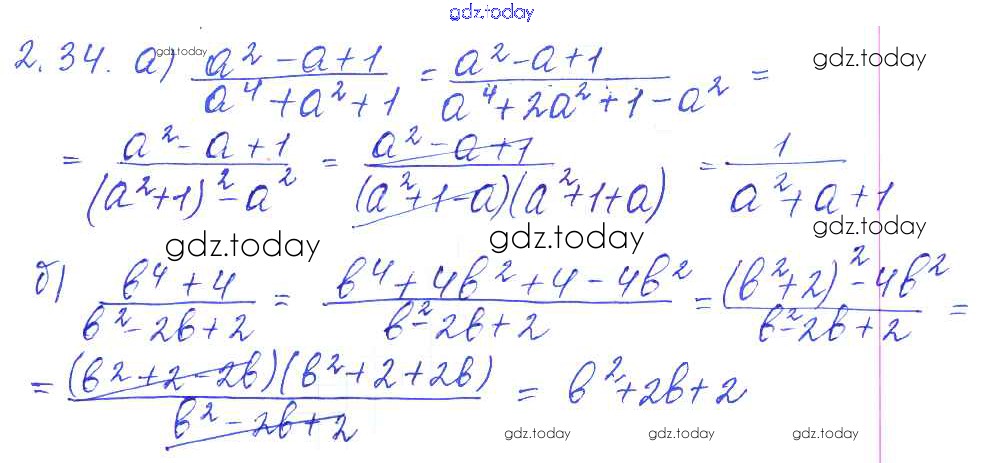 gdz.today
2.34. а) (a² - a + 1)/(a⁴ + a² + 1) = (a² - a + 1)/(a⁴ + 2a² + 1 - a²) =
gdz.today gdz.today
= (a² - a + 1)/((a² + 1)² - a²) = (a² - a + 1)/((a² + 1 - a)(a² + 1 + a)) = 1/(a² + a + 1)
gdz.today gdz.today gdz.today
б) (b⁴ + 4)/(b² - 2b + 2) = (b⁴ + 4b² + 4 - 4b²)/(b² - 2b + 2) = ((b² + 2)² - 4b²)/(b² - 2b + 2) =
= ((b² + 2 - 2b)(b² + 2 + 2b))/(b² - 2b + 2) = b² + 2b + 2
gdz.today gdz.today gdz.today